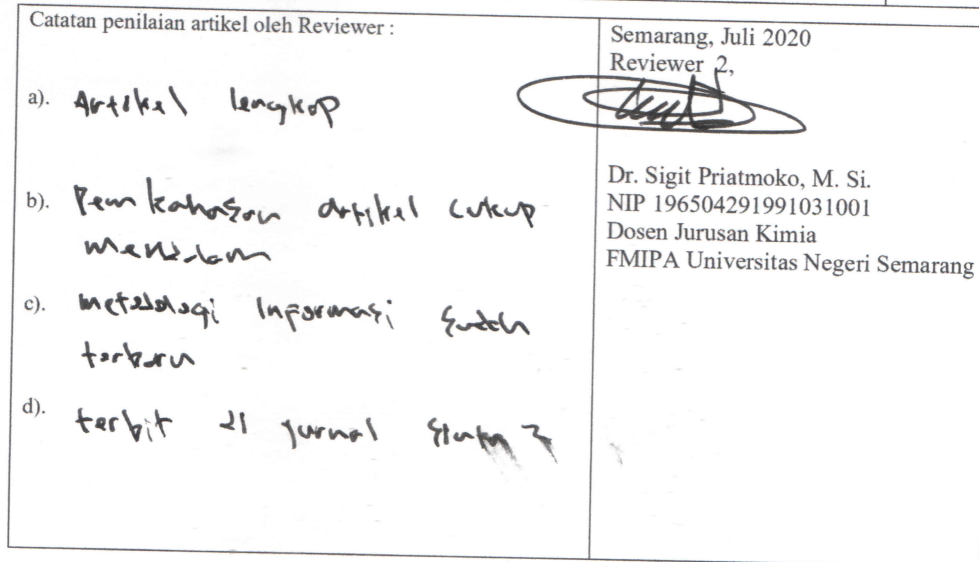 Catatan penilaian artikel oleh Reviewer :
a). Artikel lengkap
b). Pembahasan artikel cukup
mendalam
c). metodologi Informasi sudah
terbaru
d). terbit di jurnal Sinta 2
Semarang, Juli 2020
Reviewer 2,
Dr. Sigit Priatmoko, M. Si.
NIP 196504291991031001
Dosen Jurusan Kimia
FMIPA Universitas Negeri Semarang